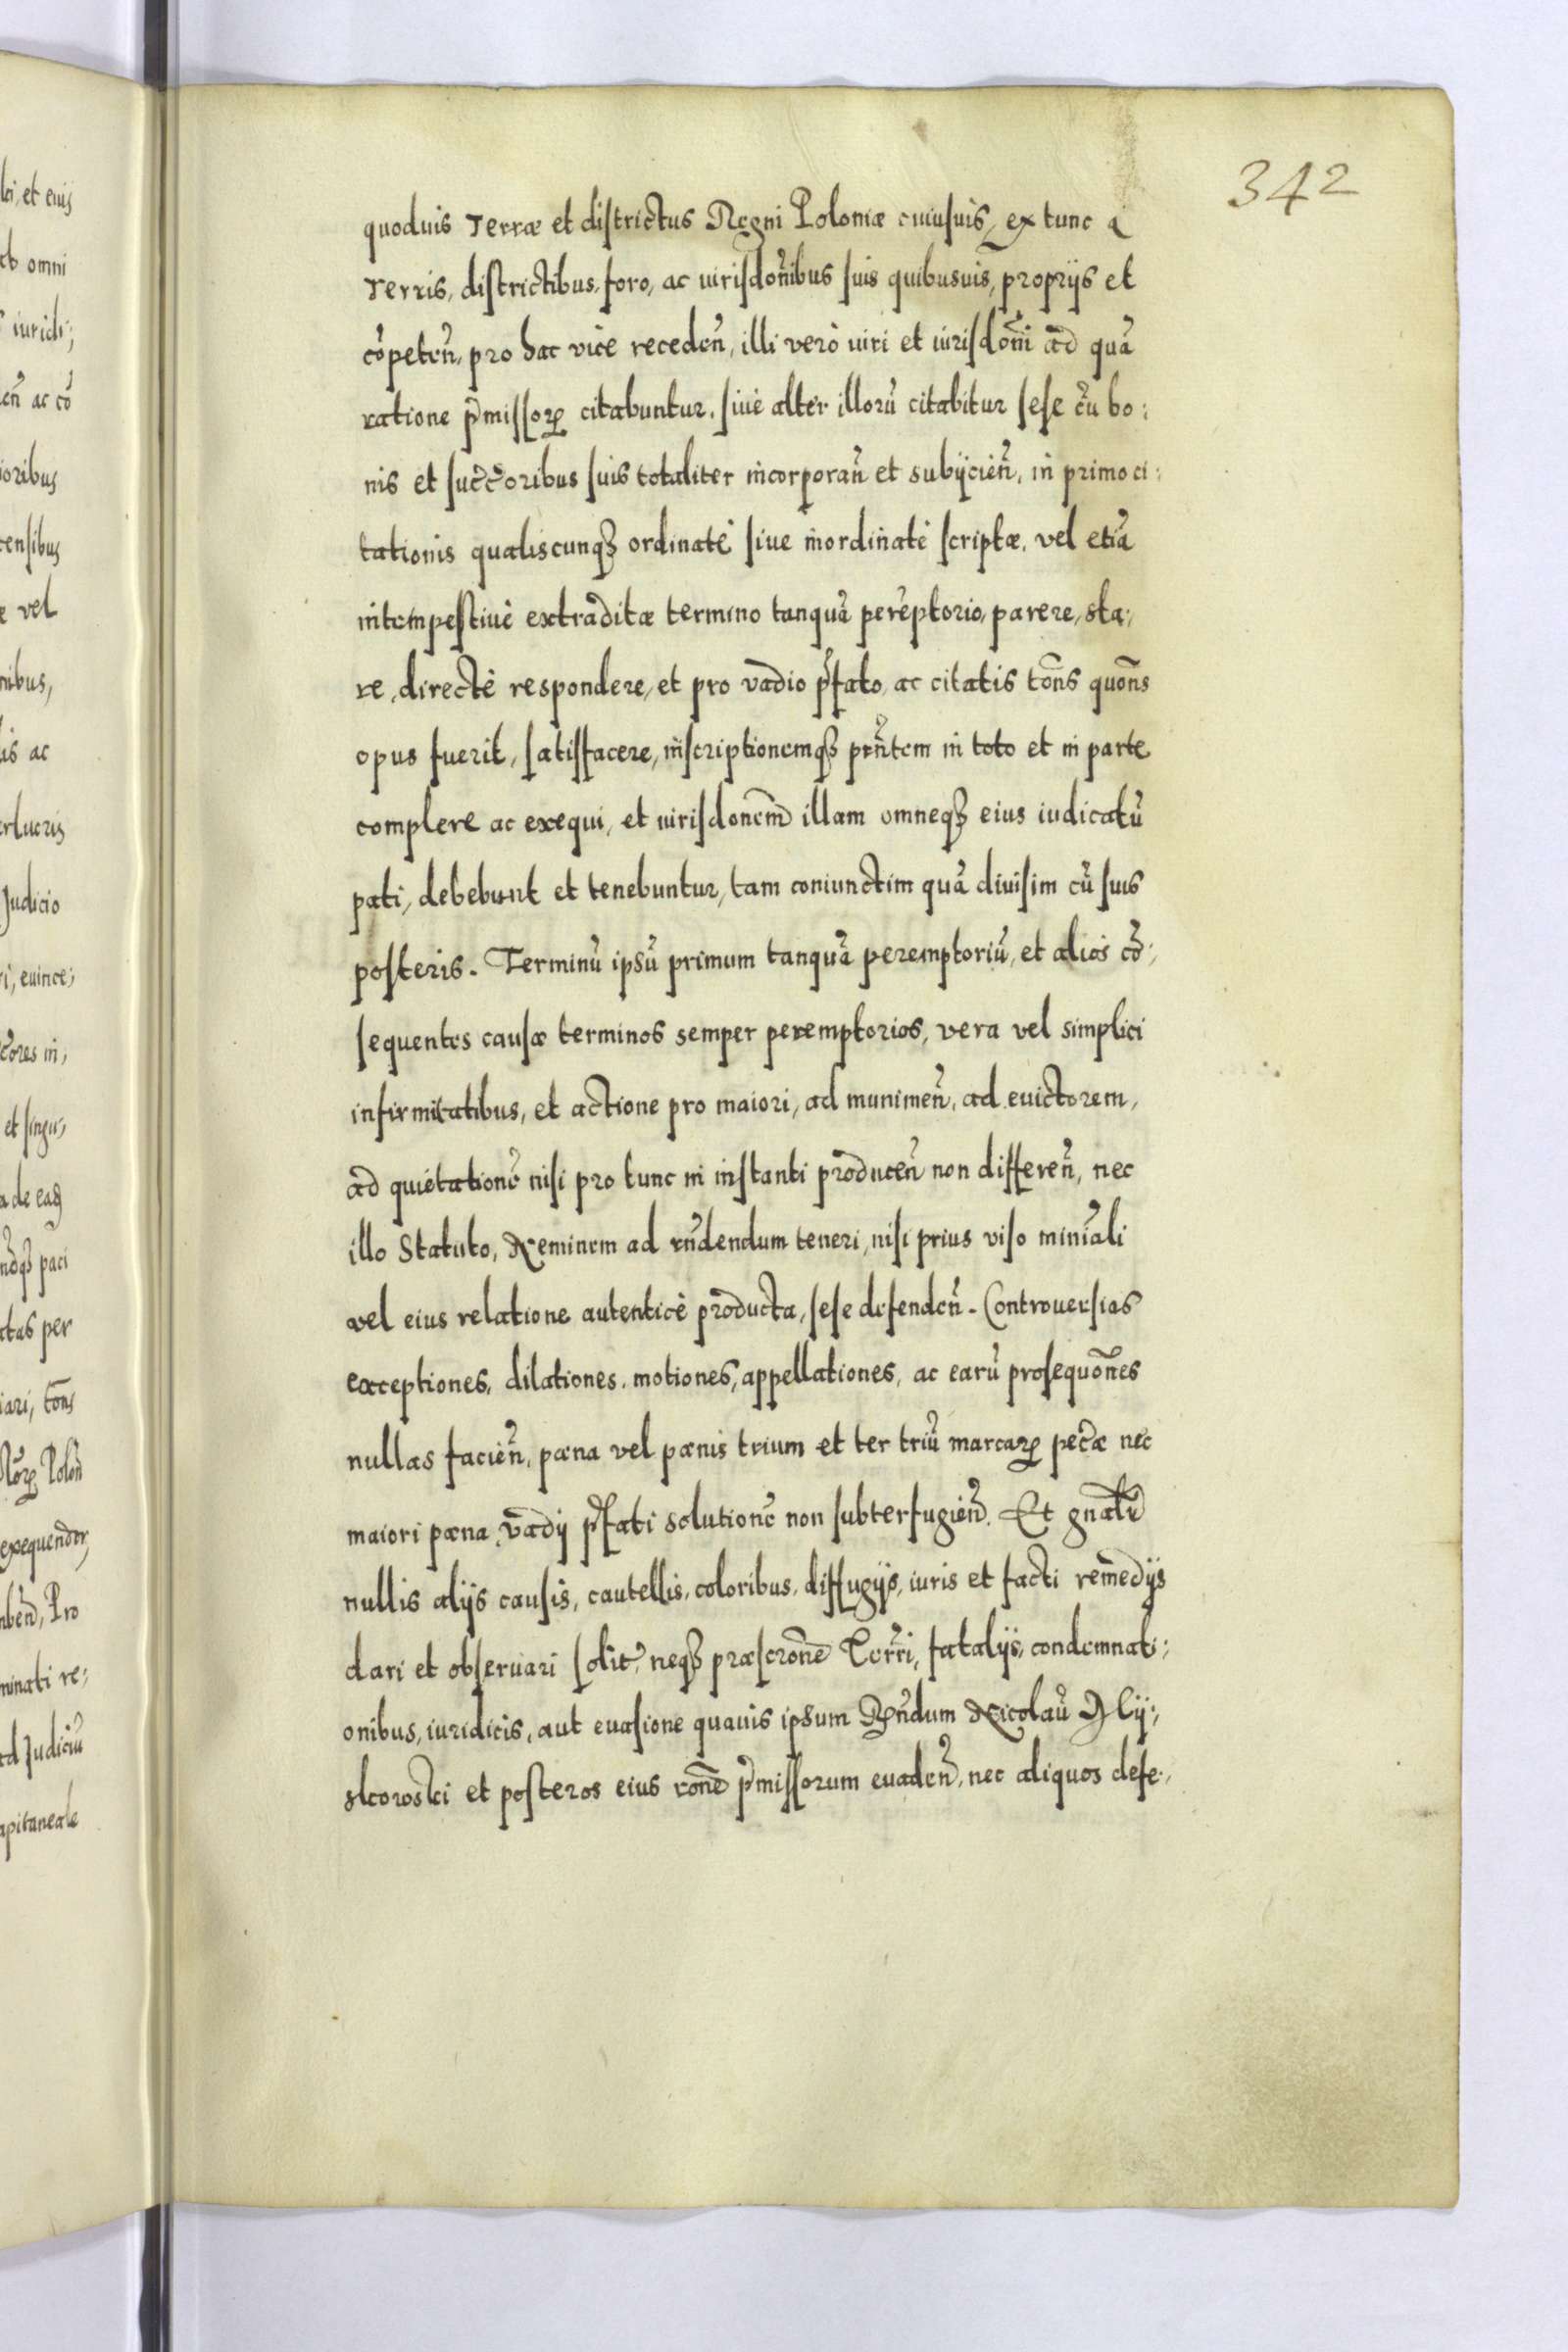 342
quoduis Terræ et districtus Regni Poloniæ cuiusuis, ex tunc a
Terris, districtibus, foro, ac iurisdoñibus suis quibusuis, proprijs et
cōpeten̄, pro hac vice receden̄, illi verò iuri et iurisdoñi ad quā
ratione p̄missoꝝ citabuntur, siue alter illorū citabitur sese cū bo:
nis et succ̄oribus suis totaliter incorporan̄ et subijcien̄, in primo ci:
tationis qualiscunqꝫ ordinatè siue inordinatè scriptæ, vel etiā
intempestiuè extraditæ termino tanquā perēptorio, parere, sta:
re, directè respondere, et pro vadio p̄fato, ac citatis tōns quōns
opus fuerit, satisfacere, inscriptionemqꝫ pn̄tem in toto et in parte
complere ac exequi, et iurisdonem̄ illam omneqꝫ eius iudicatū
pati, debebunt et tenebuntur, tam coniunctim quā diuisim cū suis
posteris. Terminū ipsū primum tanquā peremptoriū, et alios cō:
sequentes causæ terminos semper peremptorios, vera vel simplici
infirmitatibus, et actione pro maiori, ad munimen̄, ad euictorem,
ad quietationē nisi pro tunc in instanti producen̄ non differen̄, nec
illo Statuto, Neminem ad rn̄dendum teneri, nisi prius viso miniāli
vel eius relatione autenticè producta, sese defenden̄. Controuersias
exceptiones, dilationes, motiones, appellationes, ac earū prosequōnes
nullas facien̄, pæna vel pænis trium et ter triū marcaꝝ pec̄æ nec
maiori pæna, vadij p̄fati solutionē non subterfugien̄. Et gnāl̄r
nullis alijs causis, cautellis, coloribus, diffugijs, iuris et facti remedijs
dari et obseruari solit̄, neqꝫ præscronē Terr̄i, fatalijs, condemnati:
onibus, iuridicis, aut euasione quauis ipsum Rn̄dum Nicolaū Mij:
skowski et posteros eius ronē p̄missorum euaden̄, nec aliquos defe: